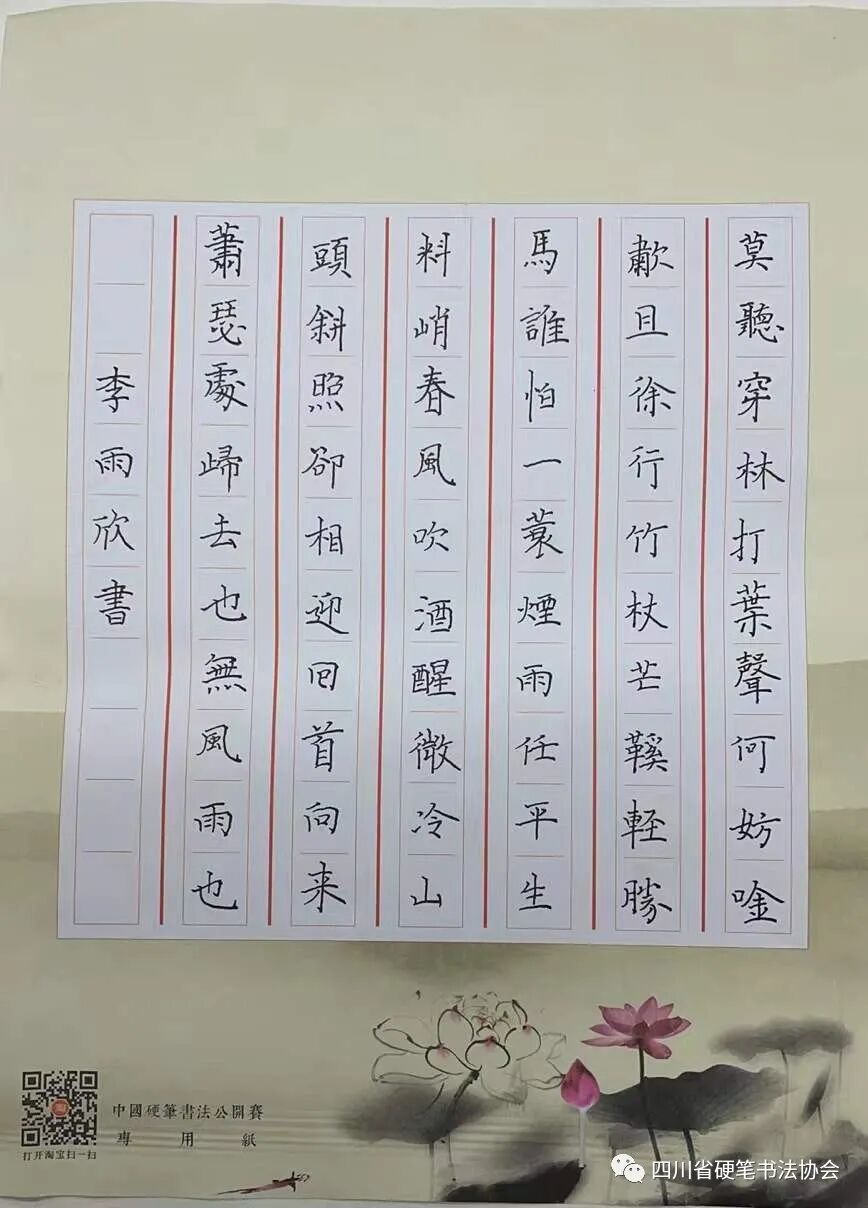 莫聽穿林打葉聲何妨唫
歗且徐行竹杖芒鞵軽勝
馬誰怕一蓑煙雨任平生
料峭春風吹酒醒微冷山
頭斜照卻相迎回首向来
蕭瑟處歸去也無風雨也
李雨欣書
中國硬筆書法公開賽
專用紙
打开淘宝扫一扫
四川省硬笔书法协会